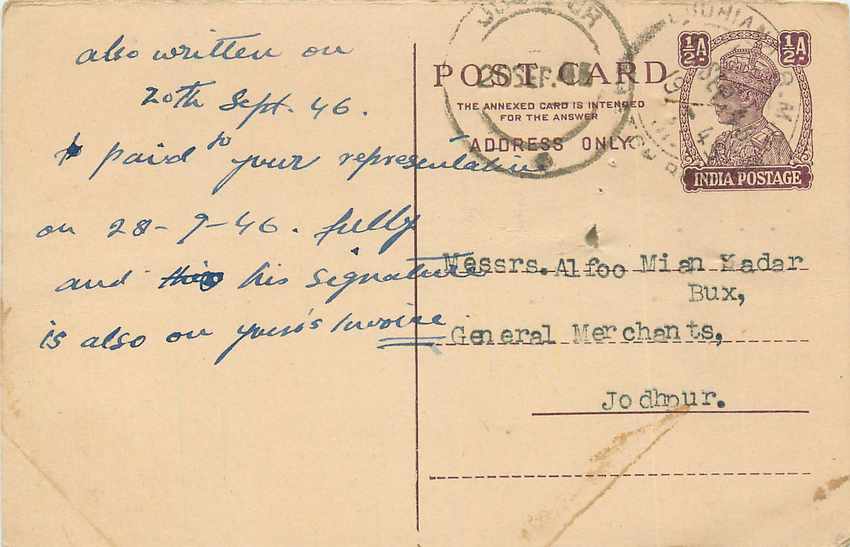 also written on
20th Sept. 46.
& paid to your representative
on 28-9-46. fully
and this his signature
is also on yours's Invoice
POST CARD
THE ANNEXED CARD IS INTENDED
FOR THE ANSWER
ADDRESS ONLY.
½A ½A
INDIA POSTAGE
Messrs. Alfoo Mian Kadar
Bux,
General Merchants,
Jodhpur.